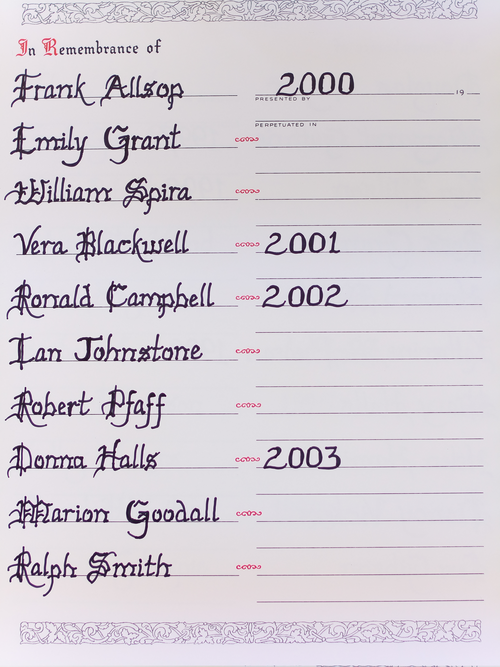 In Remembrance of
Frank Allsop 2000 19
PRESENTED BY
PERPETUATED IN
Emily Grant
William Spira
Vera Blackwell 2001
Ronald Campbell 2002
Ian Johnstone
Robert Pfaff
Donna Halls 2003
Marion Goodall
Ralph Smith